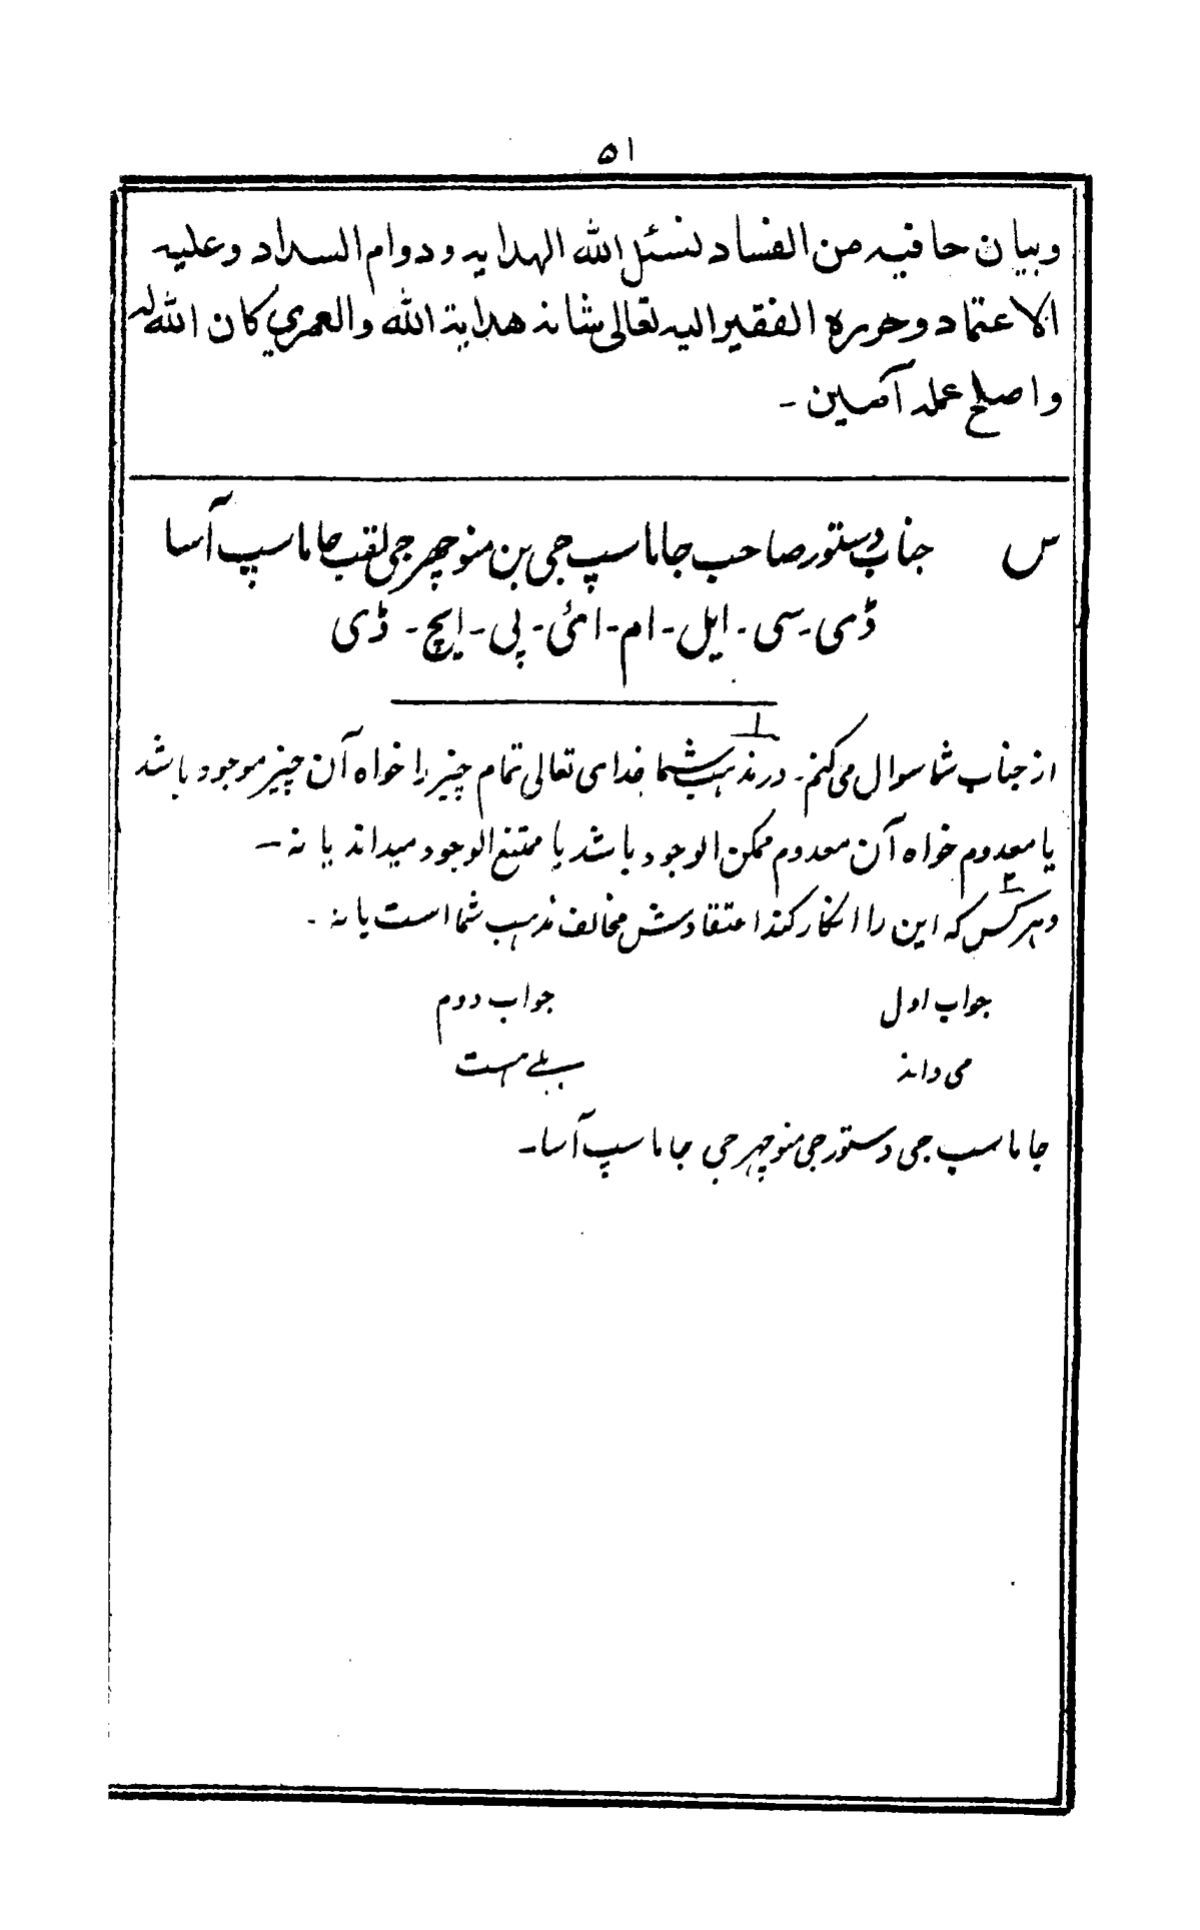 ۵۱
وبیان حافیه من الفساد نسئل الله الهدایه ودوام السداد وعلیه
الاعتماد وحرره الفقیر الیه تعالی شانه هدایة الله والعمری کان الله له
واصلح عمله آمین ۔
س جناب دستور صاحب جاماسپ جی بن منوچهر جی لقب جاماسپ آسا
ڈی۔سی۔ایل۔ام۔ائی۔پی۔ایچ۔ڈی
۱
از جناب شما سوال می کنم۔ در مذہب شما خدای تعالی تمام چیز را خواه آن چیز موجود باشد
یا معدوم خواه آن معدوم ممکن الوجود باشد یا ممتنع الوجود میداند یا نہ ۔
۲
وہر کس کہ این را انکار کند اعتقادش مخالف مذہب شما است یا نہ ۔
جواب اول جواب دوم
می داند بلے ہست
جاماسپ جی دستور جی منوچہر جی جاماسپ آسا۔